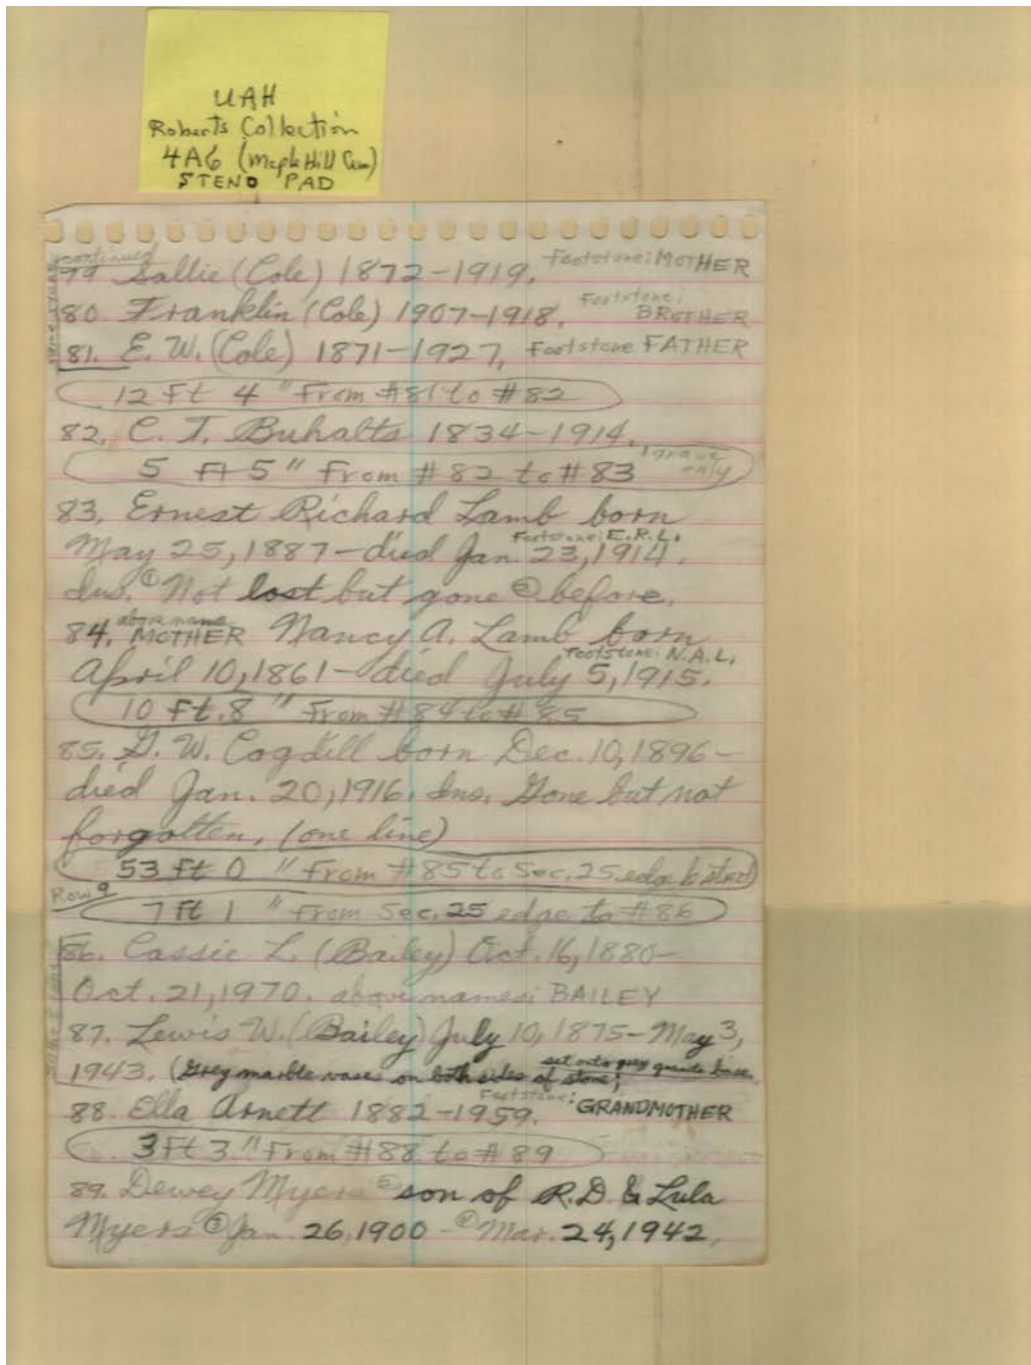 UAH
Roberts Collection
4A6 (Maple Hill Cem)
STENO PAD
continued
79 Sallie (Cole) 1872-1919. Footstone: MOTHER
80. Franklin (Cole) 1907-1918. Footstone: BROTHER
81. E. W. (Cole) 1871-1927, Footstone FATHER
12 Ft 4 " From #81 to #82
82. C. T. Buhalts 1834-1914.
5 Ft 5 " From #82 to #83 1 grave only
83. Ernest Richard Lamb born
May 25, 1887-died Jan. 23, 1914. Footstone: E.R.L.
Ins. ① Not lost but gone ② before.
84. above name MOTHER Nancy A. Lamb born
April 10, 1861-died July 5, 1915. Footstone: N.A.L.
10 Ft. 8 " From #84 to #85
85. G. W. Cogdill born Dec. 10, 1896-
died Jan. 20, 1916. Ins. Gone but not
forgotten, (one line)
53 ft 0 " From #85 to Sec. 25 edge
Row 9
7 ft 1 " From Sec. 25 edge to #86
86. Cassie L. (Bailey) Oct. 16, 1880-
Oct. 21, 1970. above names: BAILEY
87. Lewis W. (Bailey) July 10, 1875-May 3,
1943. (Grey marble vases on both sides of stone; set onto grey granite base.
88. Ella Arnett 1882-1959. Footstone: GRANDMOTHER
3 Ft 3 " From #88 to #89
89. Dewey Myers ② son of R.D. & Lula
Myers ③ Jan. 26, 1900 - ④ Mar. 24, 1942.